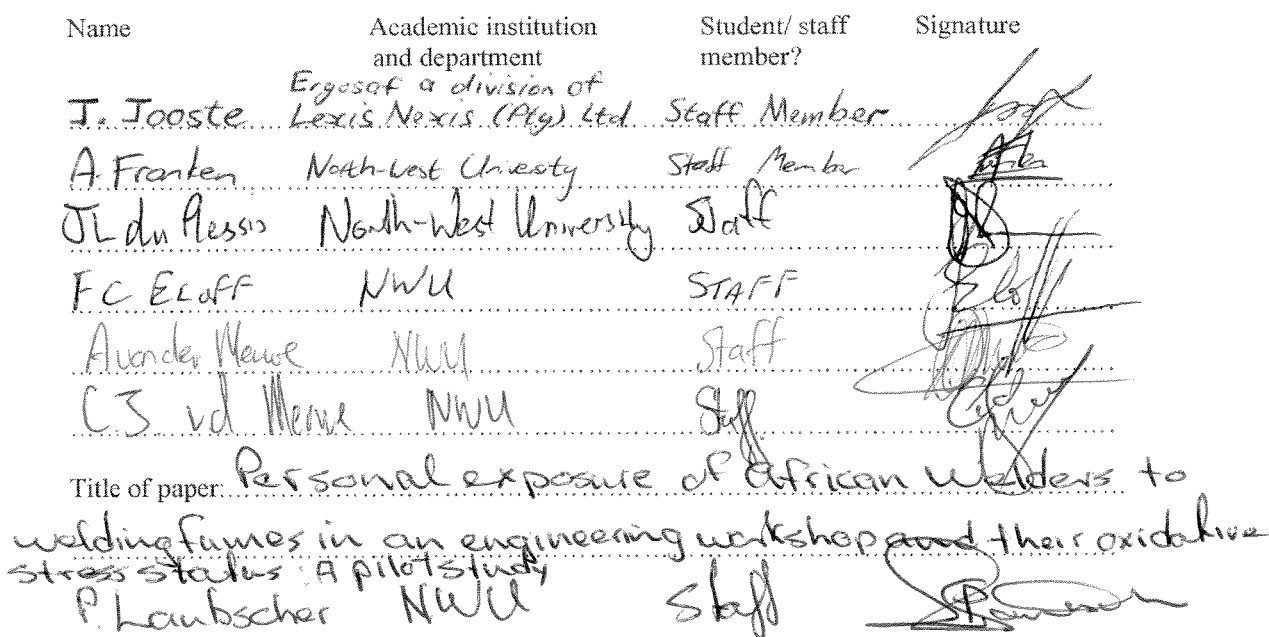 Name Academic institution and department Student/ staff member? Signature
Ergosaf a division of
J. Jooste Lexis Nexis (Pty) Ltd Staff Member
A. Franken North-West Univesty Staff Member
JL du Plessis North-West University Staff
FC ELOFF NWU STAFF
A van der Merwe NWU Staff
C.J. vd Merwe NWU Staff
Title of paper: Personal exposure of African Welders to
welding fumes in an engineering workshop and their oxidative
stress status : A pilot study
P. Laubscher NWU Staff